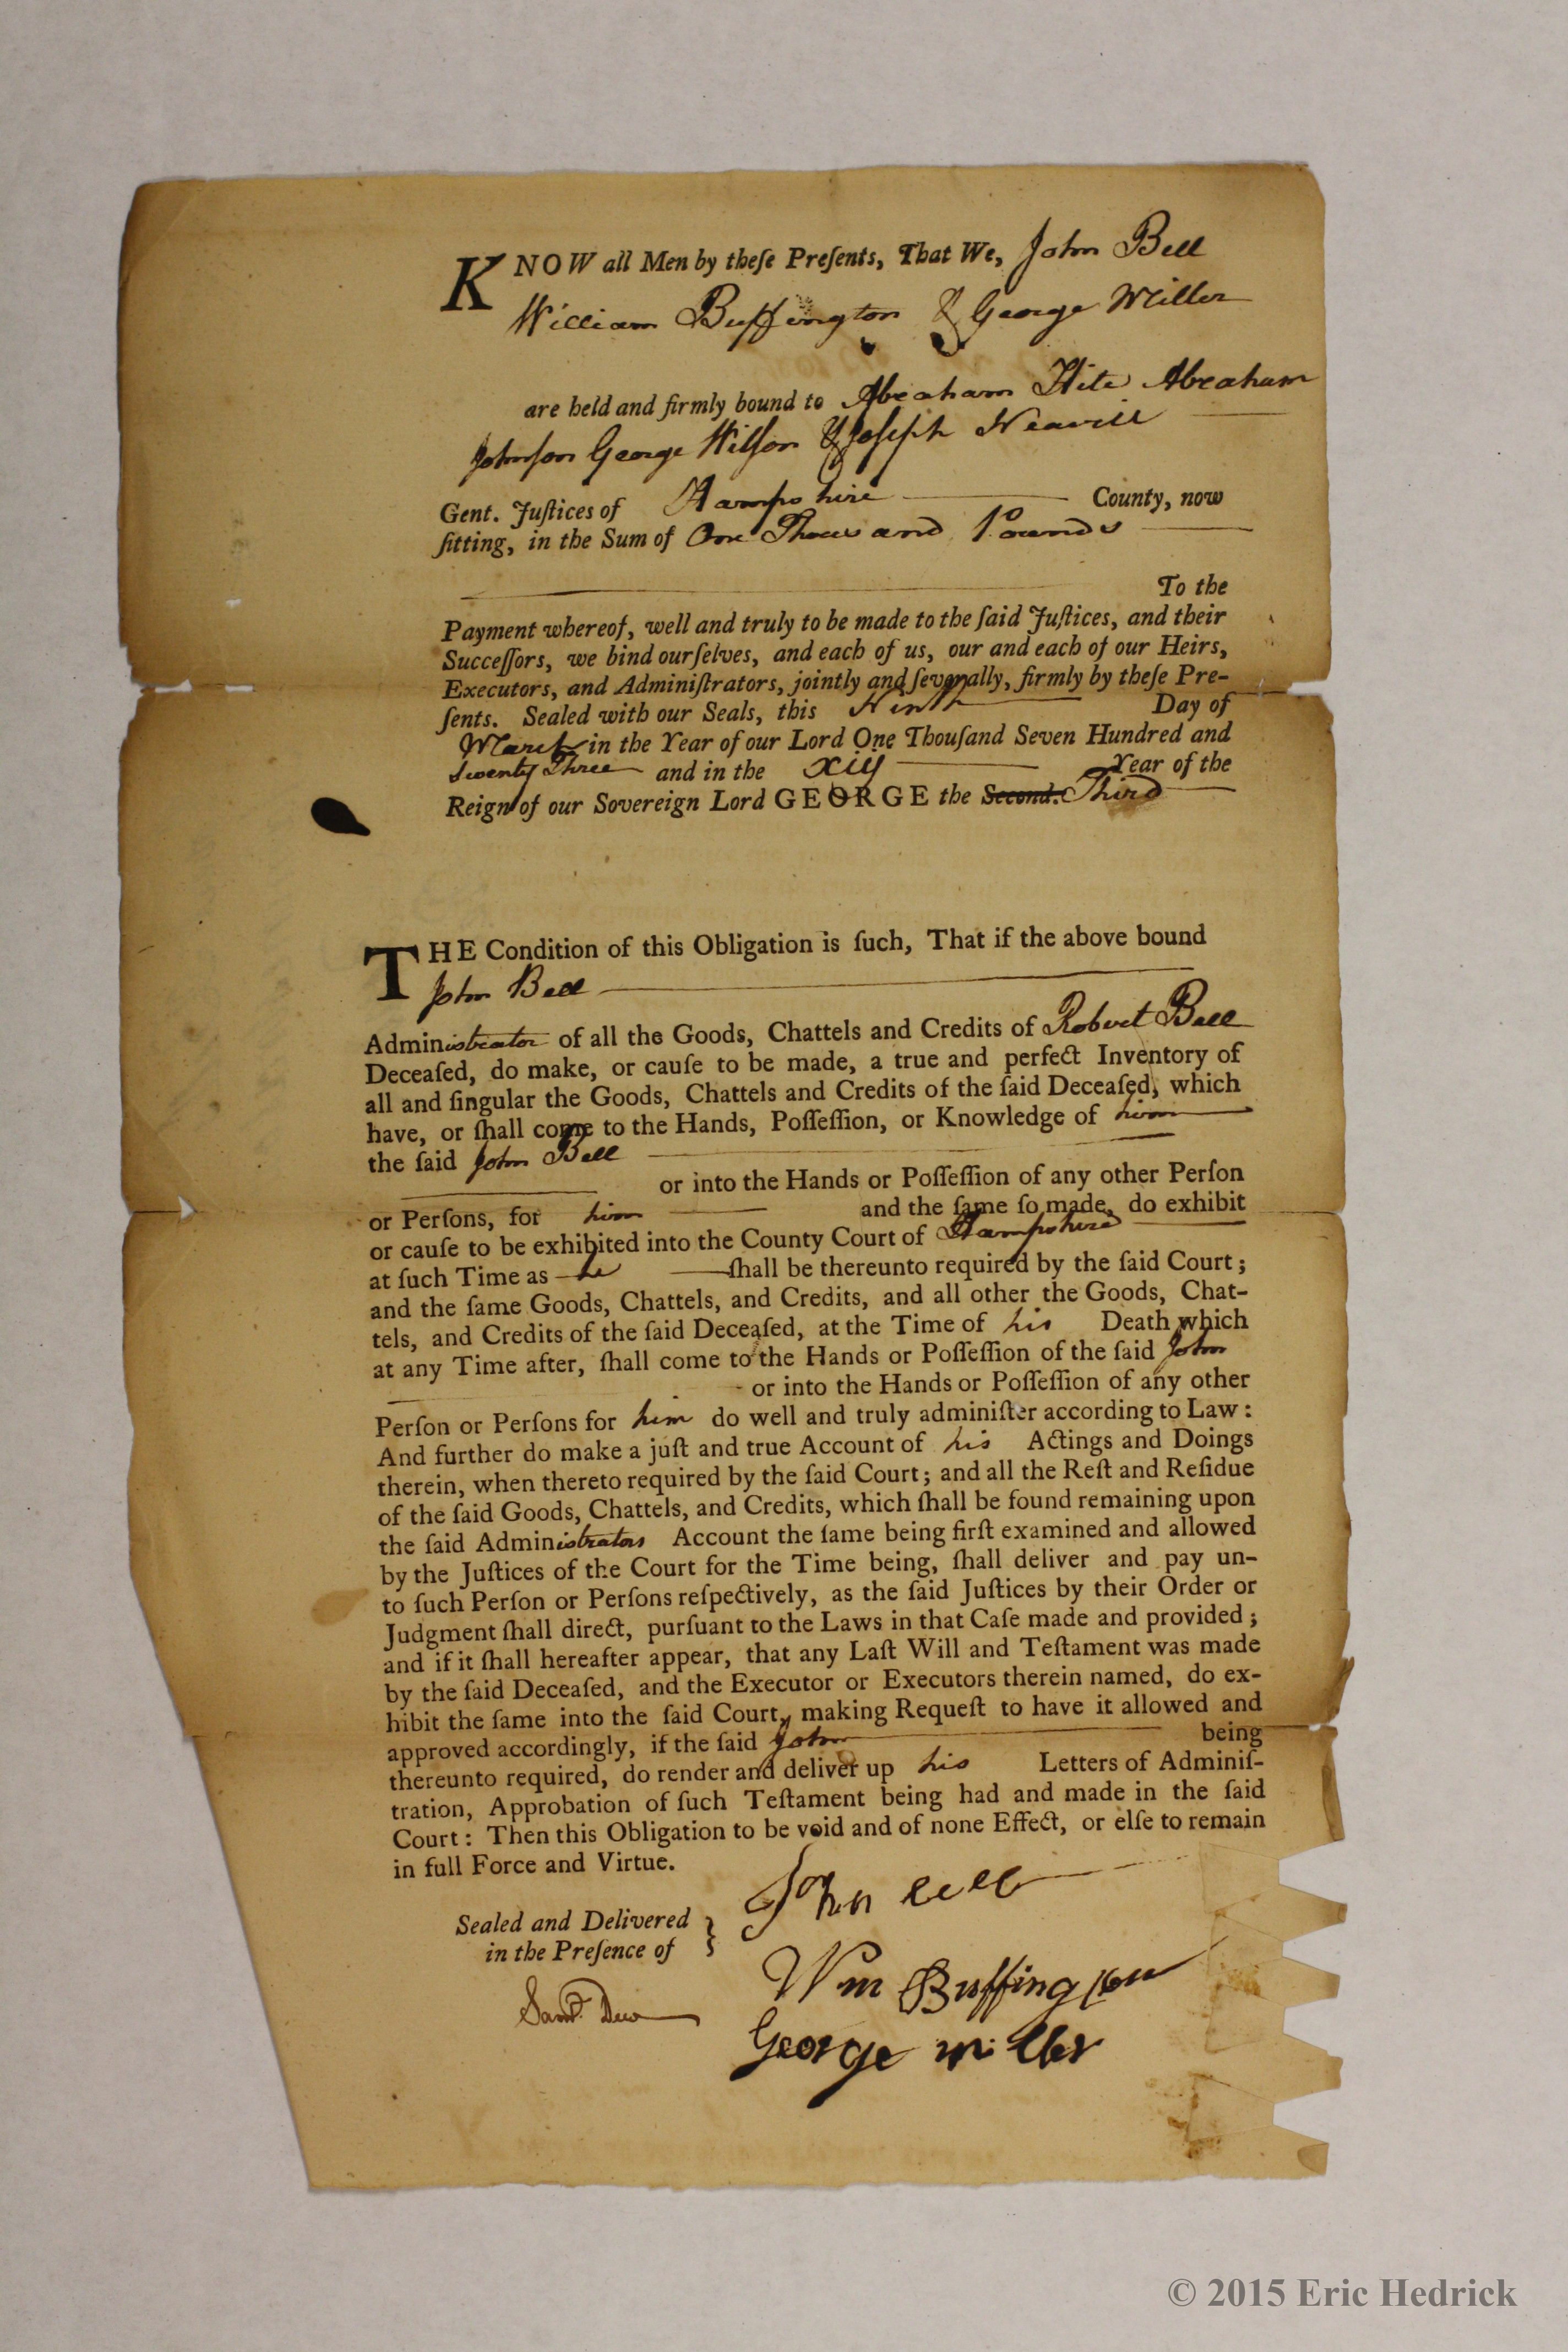 KNOW all Men by theſe Preſents, That We, John Bell
William Buffington & George Miller
are held and firmly bound to Abraham Hite Abraham
Johnſon George Wilſon & Joſeph Neavill
Gent. Juſtices of Hampshire County, now
ſitting, in the Sum of One Thousand Pounds
To the
Payment whereof, well and truly to be made to the ſaid Juſtices, and their
Succeſſors, we bind ourſelves, and each of us, our and each of our Heirs,
Executors, and Adminiſtrators, jointly and ſeverally, firmly by theſe Pre-
ſents. Sealed with our Seals, this Ninth Day of
March in the Year of our Lord One Thouſand Seven Hundred and
Seventy Three and in the xiij Year of the
Reign of our Sovereign Lord GEORGE the Second. Third
THE Condition of this Obligation is ſuch, That if the above bound
John Bell
Administrator of all the Goods, Chattels and Credits of Robert Bell
Deceaſed, do make, or cauſe to be made, a true and perfect Inventory of
all and ſingular the Goods, Chattels and Credits of the ſaid Deceaſed, which
have, or ſhall come to the Hands, Poſſeſſion, or Knowledge of him
the ſaid John Bell
or into the Hands or Poſſeſſion of any other Perſon
or Perſons, for him and the ſame ſo made, do exhibit
or cauſe to be exhibited into the County Court of Hampshire
at ſuch Time as he ſhall be thereunto required by the ſaid Court;
and the ſame Goods, Chattels, and Credits, and all other the Goods, Chat-
tels, and Credits of the ſaid Deceaſed, at the Time of his Death which
at any Time after, ſhall come to the Hands or Poſſeſſion of the ſaid John
or into the Hands or Poſſeſſion of any other
Perſon or Perſons for him do well and truly adminiſter according to Law:
And further do make a juſt and true Account of his Actings and Doings
therein, when thereto required by the ſaid Court; and all the Reſt and Reſidue
of the ſaid Goods, Chattels, and Credits, which ſhall be found remaining upon
the ſaid Administrators Account the ſame being firſt examined and allowed
by the Juſtices of the Court for the Time being, ſhall deliver and pay un-
to ſuch Perſon or Perſons reſpectively, as the ſaid Juſtices by their Order or
Judgment ſhall direct, purſuant to the Laws in that Caſe made and provided;
and if it ſhall hereafter appear, that any Laſt Will and Teſtament was made
by the ſaid Deceaſed, and the Executor or Executors therein named, do ex-
hibit the ſame into the ſaid Court, making Requeſt to have it allowed and
approved accordingly, if the ſaid John being
thereunto required, do render and deliver up his Letters of Adminiſ-
tration, Approbation of ſuch Teſtament being had and made in the ſaid
Court: Then this Obligation to be void and of none Effect, or elſe to remain
in full Force and Virtue.
John Bell
Sealed and Delivered
in the Preſence of
Wm Buffington
Saml. Dew
George Miller
© 2015 Eric Hedrick